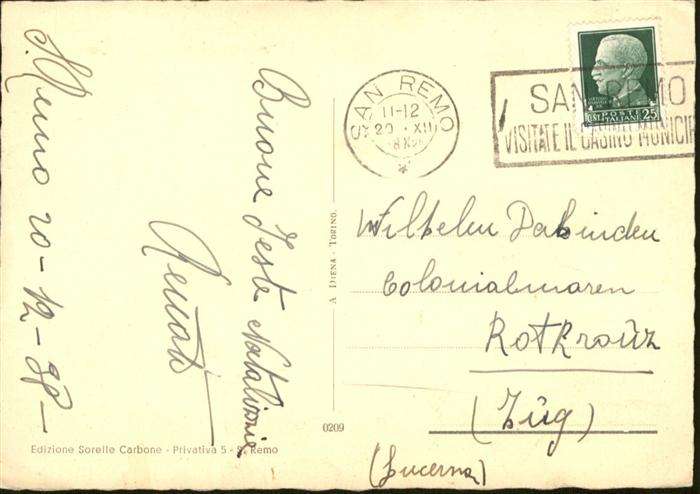 S. Remo 20-12-38-
Buone Feste Natalizie
Renato
SAN REMO
11-12
20 XII
SAN REMO
VISITATE IL CASINO MUNICIP
POSTE ITALIANE
CENT. 25
A DIENA - TORINO.
Wilhelm Dabinden
Colonialwaren
Rotkreùz
(Zùg)
(Lucerna)
0209
Edizione Sorelle Carbone - Privativa 5 - S. Remo